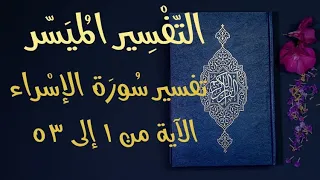 التَّفْسِير المُيَسَّر
تفسير سُورَة الإسْراء
الآية من ١ إلى ٥٣
القرآن الكريم